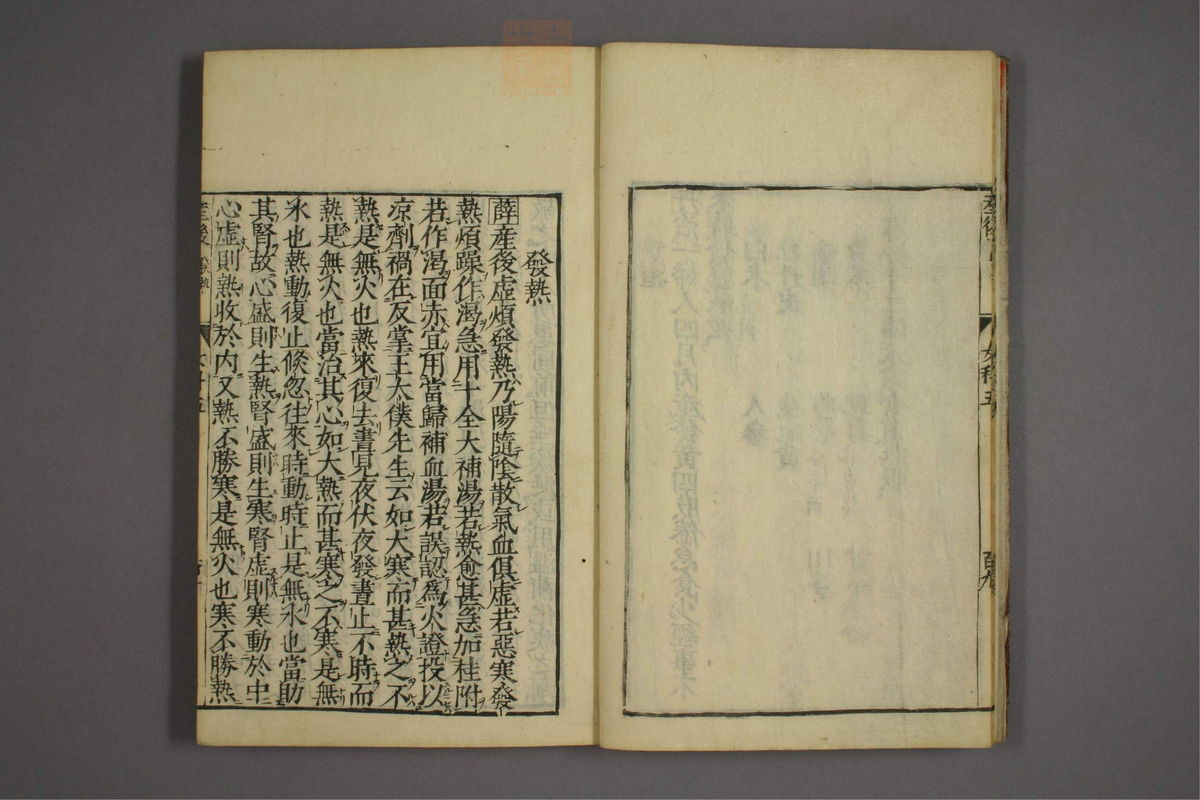 發熱
薛產後虛煩發熱乃陽隨陰散氣血俱虛若惡寒發
熱煩躁作渴急用十全大補湯若熱愈甚急加桂附
若作渴面赤宜用當歸補血湯若誤認爲火證投以
凉劑禍在反掌王太僕先生云如大寒而甚熱之不
熱是無火也熱來復去晝見夜伏夜發晝止不時而
熱是無火也當治其心如大熱而甚寒之不寒是無
水也熱動復止倏忽往來時動時止是無水也當助
其腎故心盛則生熱腎盛則生寒腎虛則寒動於中
心虛則熱收於内又熱不勝寒是無火也寒不勝熱
產後 發熱
女科五
產後
女科五
百九